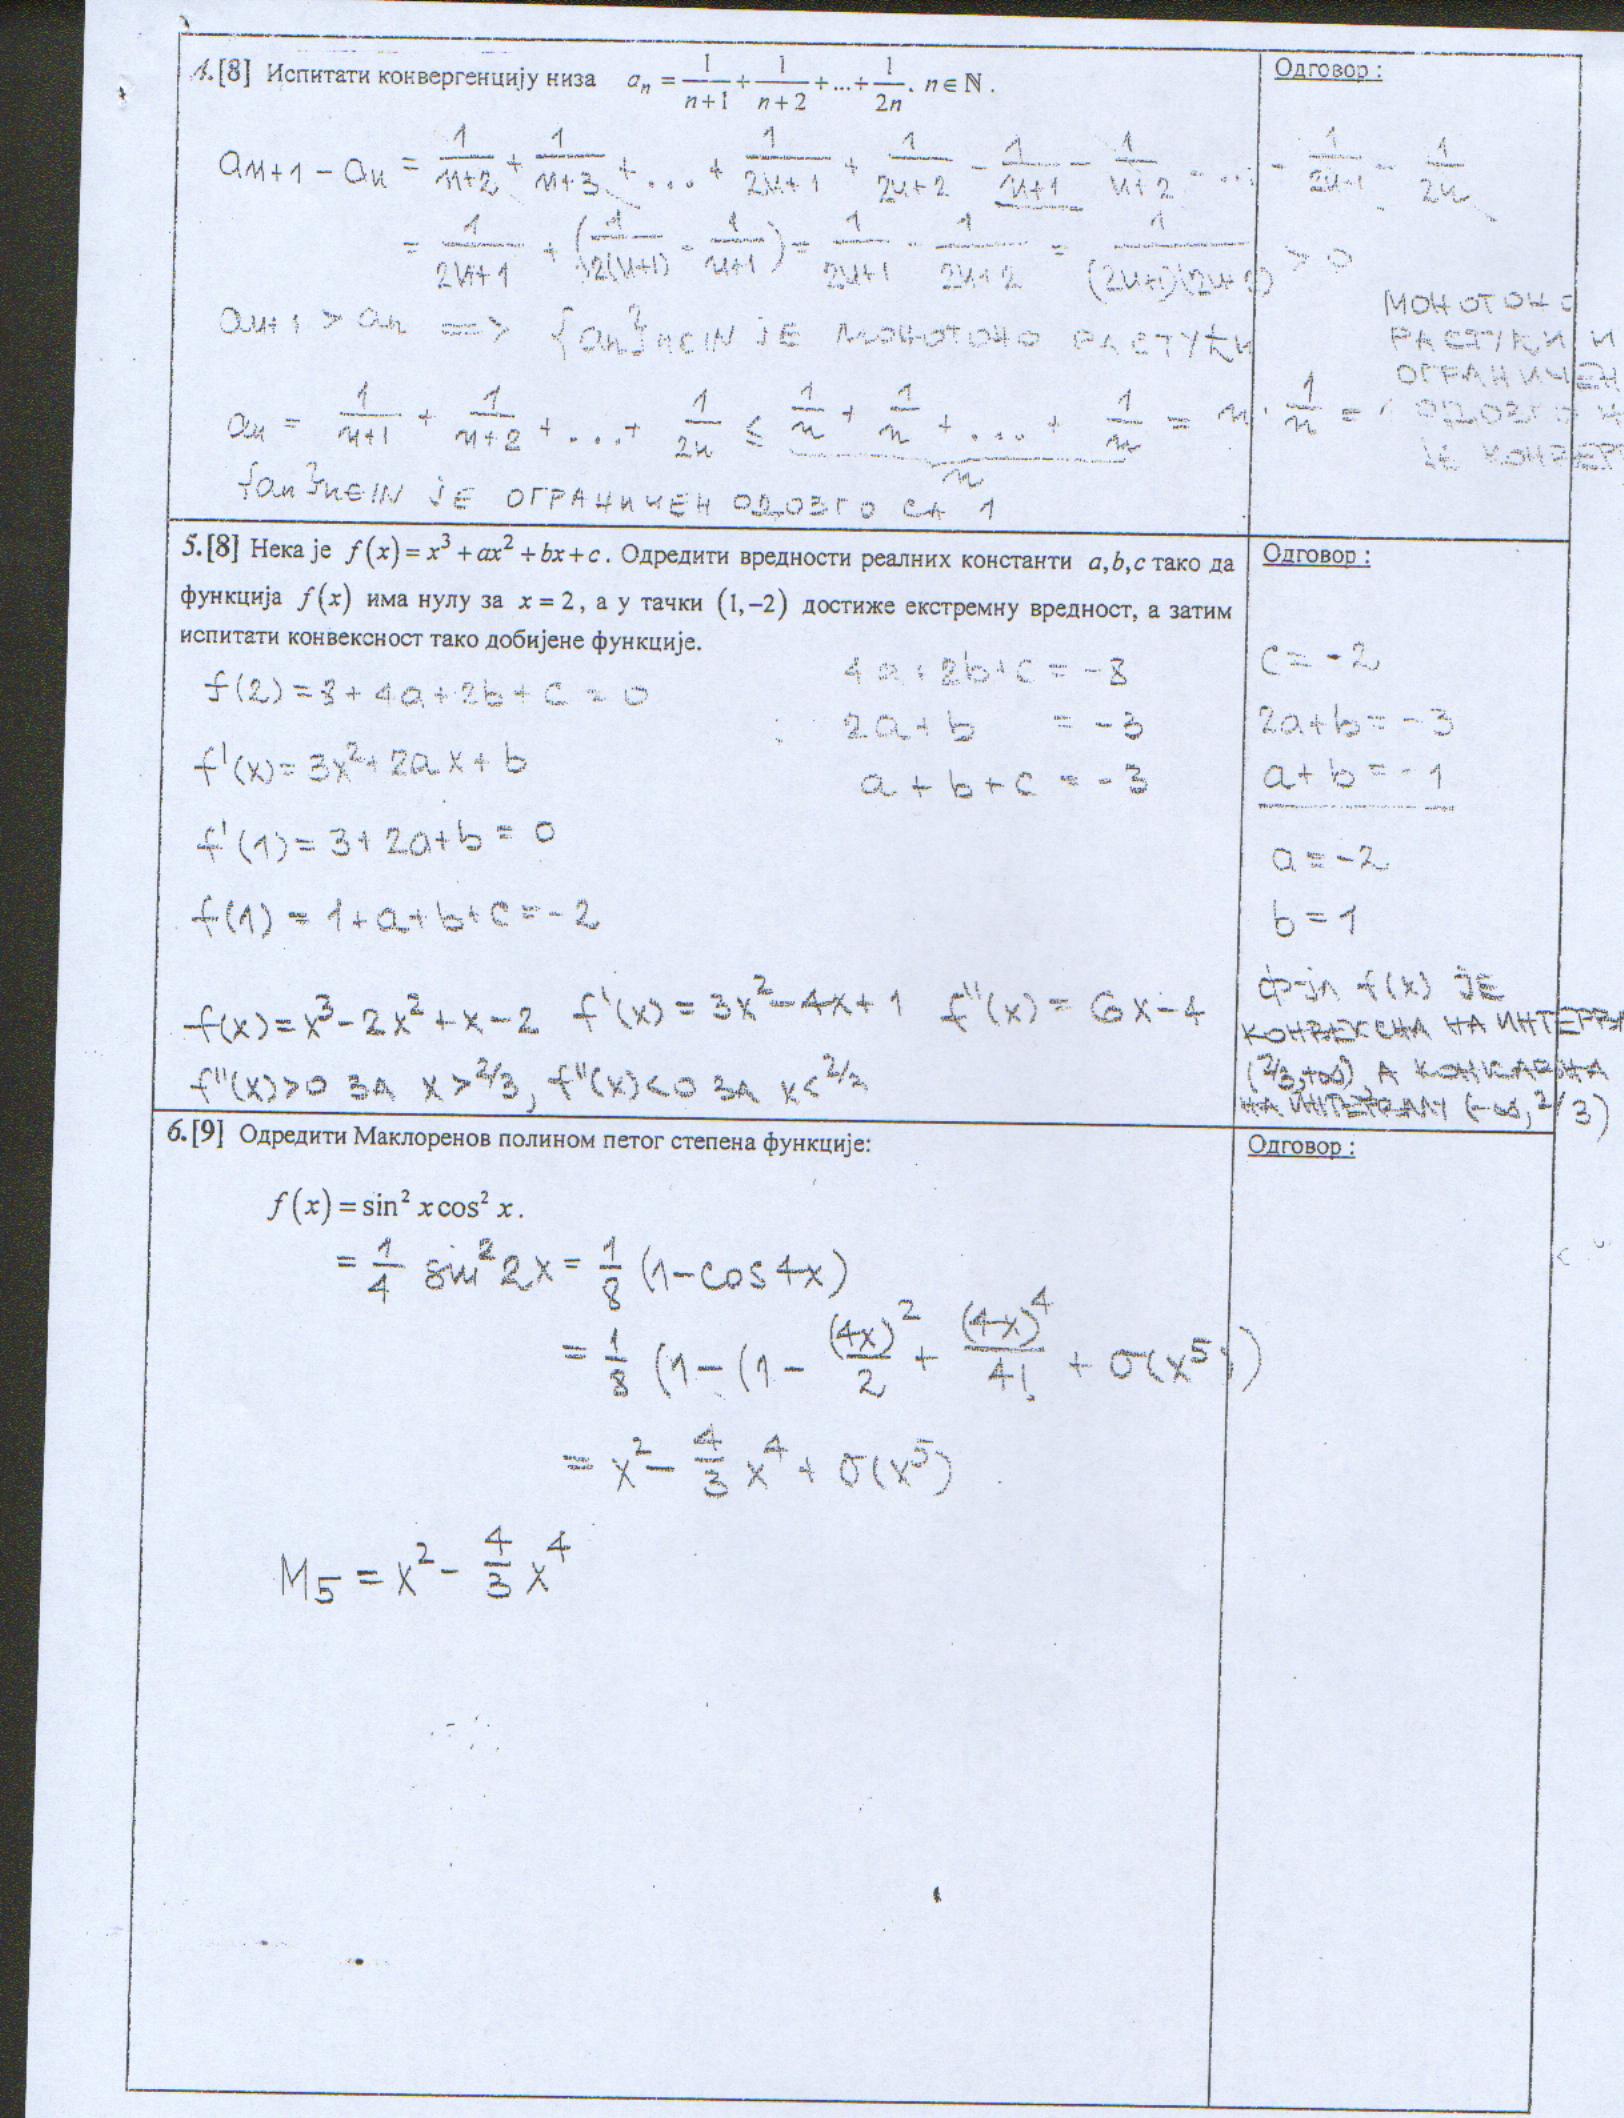 4.[8] Испитати конвергенцију низа a_n = 1/(n+1) + 1/(n+2) + ... + 1/(2n), n ∈ ℕ.
Одговор:
an+1 - an = 1/(n+2) + 1/(n+3) + ... + 1/(2n+1) + 1/(2n+2) - 1/(n+1) - 1/(n+2) - ... - 1/(2n-1) - 1/(2n)
= 1/(2n+1) + (1/(2(n+1)) - 1/(n+1)) = 1/(2n+1) - 1/(2n+2) = 1/((2n+1)(2n+2)) > 0
an+1 > an => {an}n∈IN ЈЕ МОНОТОНО РАСТУЋИ
an = 1/(n+1) + 1/(n+2) + ... + 1/(2n) ≤ 1/n + 1/n + ... + 1/n = n · 1/n =
n
{an}n∈IN ЈЕ ОГРАНИЧЕН ОДОЗГО СА 1
МОНОТОНО
РАСТУЋИ И
ОГРАНИЧЕН
ОДОЗГО
ЈЕ КОНВЕР
5.[8] Нека је f(x) = x³ + ax² + bx + c. Одредити вредности реалних константи a,b,c тако да
функција f(x) има нулу за x = 2, а у тачки (1,−2) достиже екстремну вредност, а затим
испитати конвексност тако добијене функције.
f(2) = 8 + 4a + 2b + c = 0
f'(x) = 3x² + 2ax + b
f'(1) = 3 + 2a + b = 0
f(1) = 1 + a + b + c = -2
4a + 2b + c = -8
2a + b = -3
a + b + c = -3
f(x) = x³ - 2x² + x - 2 f'(x) = 3x² - 4x + 1 f''(x) = 6x - 4
f''(x) > 0 ЗА x > 2/3, f''(x) < 0 ЗА x < 2/3
Одговор:
c = -2
2a + b = -3
a + b = -1
a = -2
b = 1
ф-ја f(x) ЈЕ
КОНВЕКСНА НА ИНТЕРВА
(2/3, +∞), А КОНКАВНА
НА ИНТЕРВАЛУ (-∞, 2/3)
6.[9] Одредити Маклоренов полином петог степена функције:
f(x) = sin² x cos² x.
= 1/4 sin² 2x = 1/8 (1 - cos 4x)
= 1/8 (1 - (1 - (4x)²/2 + (4x)⁴/4! + σ(x⁵))
= x² - 4/3 x⁴ + σ(x⁵)
M5 = x² - 4/3 x⁴
Одговор: